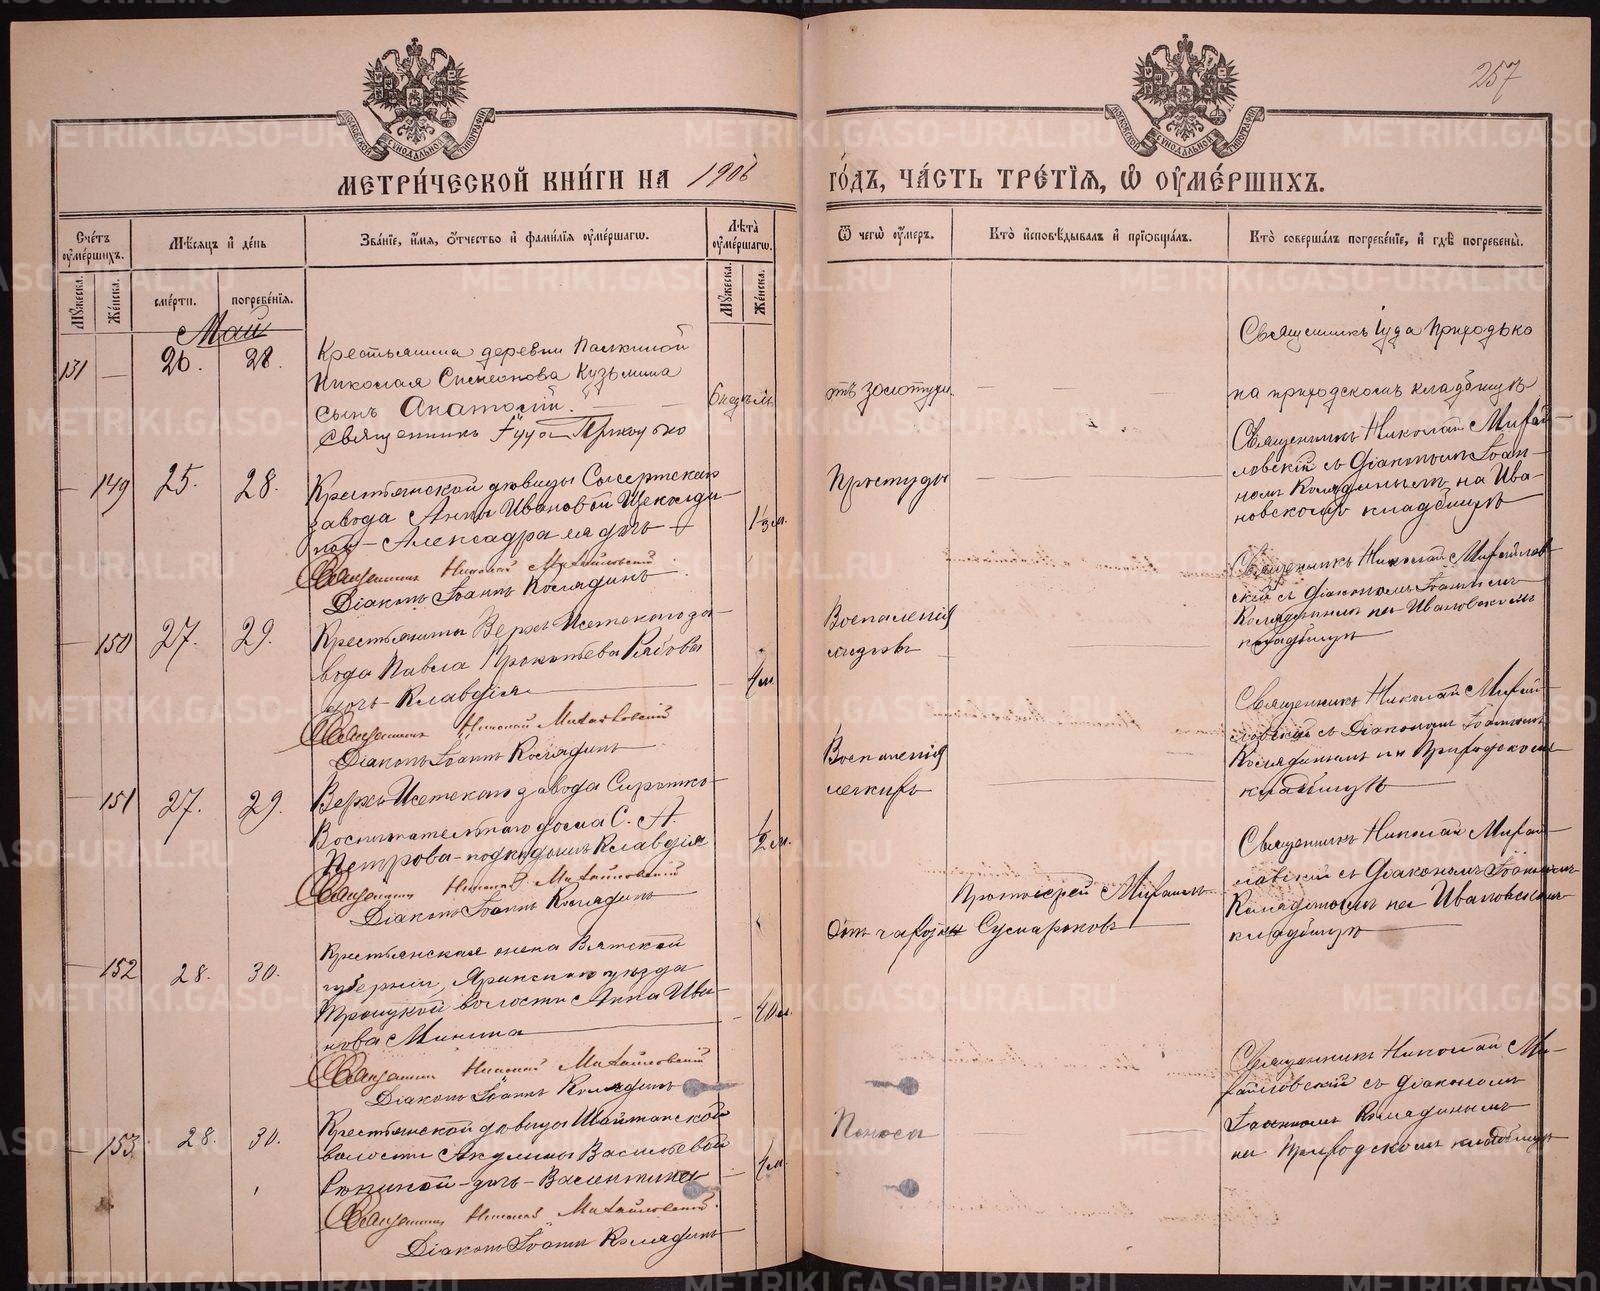 257
МЕТРИ́ЧЕСКОЙ КНИ́ГИ НА 1906
ГО́ДЪ, ЧА́СТЬ ТРЕ́ТІЯ, Ѽ ОУМЕ́РШИХЪ.
Сче́тъ оуме́ршихъ.
Мужеска.
Женска.
Мѣсяцъ и де́нь
сме́рти.
погребе́нія.
Зва́ніе, и́мя, о́тчество и фами́лія оуме́ршаго.
Лѣта̀ оуме́ршаго.
Мужеска.
Женска.
Ѿ чегѡ̀ оу́меръ.
Кто̀ исповѣ́дывалъ и прїобща́лъ.
Кто̀ соверша́лъ погребе́ніе, и гдѣ̀ погребены̀.
Май
131 — 26. 28.
Крестьянина деревни Палкиной
Николая Симеонова Кузьмина
сынъ Анатолій.
Священникъ Іуда Приходько
6 нед
отъ золотухи
Священникъ Іуда Приходько
на приходскомъ кладбищѣ
— 149 25. 28.
Крестьянской дѣвицы Сысертскаго
завода Анны Ивановой Щеколди-
ной — Александра дочь
Священникъ Николай Михайловскій
Діаконъ Іоаннъ Колядинъ
Простуды
Священникъ Николай Михай-
ловскій съ Діакономъ Іоан-
номъ Колядинымъ на Ива-
новскомъ кладбищѣ
— 150 27. 29.
Крестьянина Верхъ-Исетскаго за-
вода Павла Прокопьева Рябова
дочь — Клавдія
Священникъ Николай Михайловскій
Діаконъ Іоаннъ Колядинъ
4 м.
Воспаленія
Священникъ Николай Михайлов-
скій съ Діакономъ Іоанномъ
Колядинымъ на Ивановскомъ
кладбищѣ
— 151 27. 29.
Верхъ-Исетскаго завода Сиротско-
Воспитательнаго дома С. А.
Петрова — подкидышъ Клавдія
Священникъ Николай Михайловскій
Діаконъ Іоаннъ Колядинъ
½ м.
Воспаленія
легкихъ
Священникъ Николай Михай-
ловскій съ Діакономъ Іоанномъ
Колядинымъ на Приходскомъ
кладбищѣ
— 152 28. 30.
Крестьянская жена Вятской
губерніи, Яранскаго уѣзда
Троицкой волости Анна Ива-
нова Минина
Священникъ Николай Михайловскій
Діаконъ Іоаннъ Колядинъ
40 л.
Отъ чахотки
Протоіерей Михаилъ
Сумароковъ
Священникъ Николай Михай-
ловскій съ Діакономъ Іоанномъ
Колядинымъ на Ивановскомъ
кладбищѣ
— 153 28. 30.
Крестьянской дѣвицы Шайтанской
волости Акулины Васильевой
дочь — Валентина
Священникъ Николай Михайловскій
Діаконъ Іоаннъ Колядинъ
4 м.
Поноса
Священникъ Николай Ми-
хайловскій съ Діакономъ
Іоанномъ Колядинымъ
на Приходскомъ кладбищѣ
METRIKI.GASO-URAL.RU